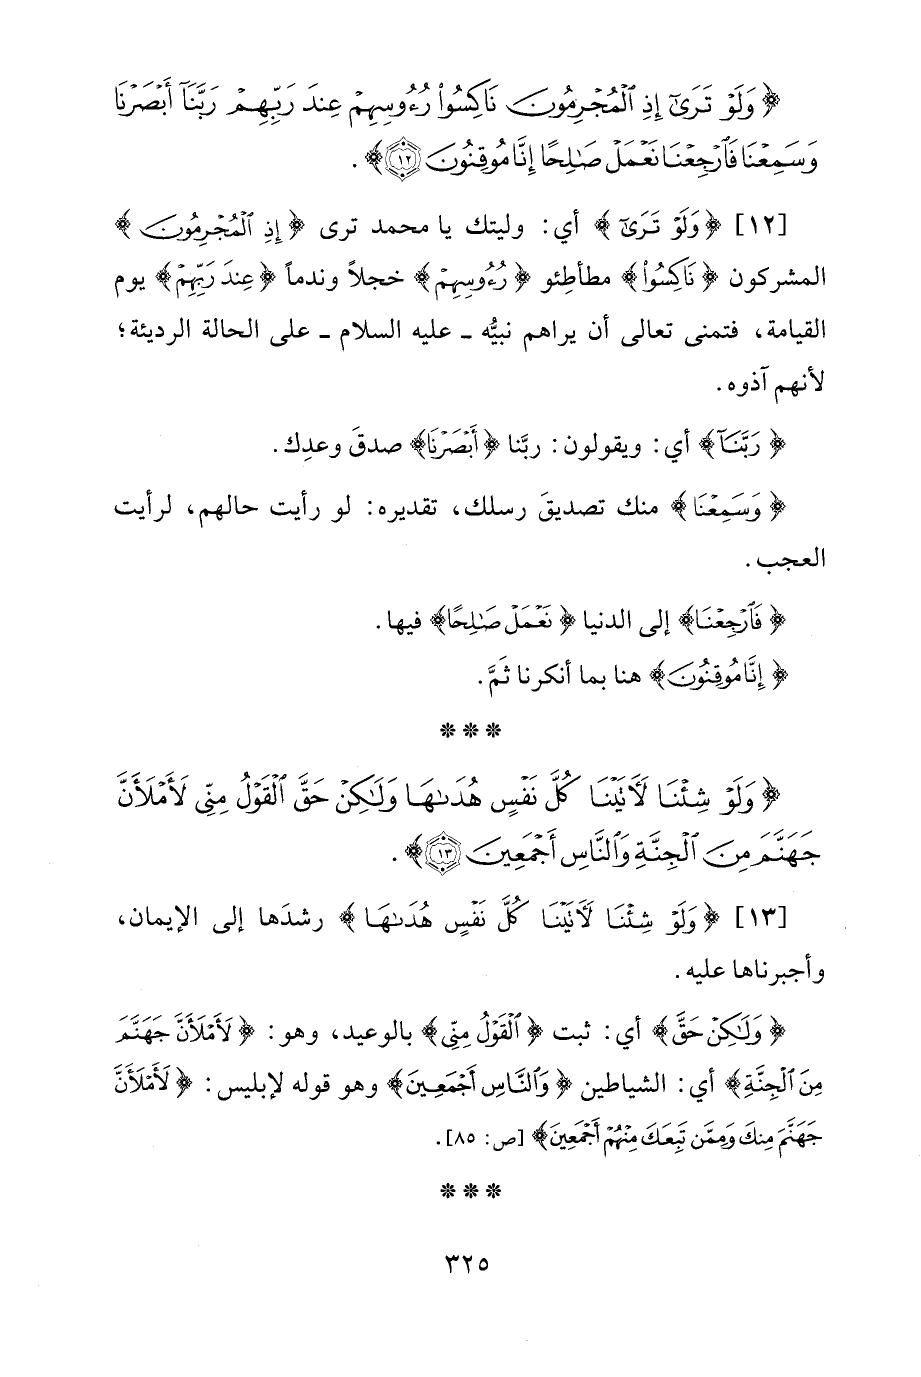 ﴿ وَلَوْ تَرَىٰٓ إِذِ ٱلْمُجْرِمُونَ نَاكِسُوا۟ رُءُوسِهِمْ عِندَ رَبِّهِمْ رَبَّنَآ أَبْصَرْنَا
وَسَمِعْنَا فَٱرْجِعْنَا نَعْمَلْ صَٰلِحًا إِنَّا مُوقِنُونَ ١٢﴾ .
[١٢] ﴿وَلَوْ تَرَىٰٓ﴾ أي: وليتك يا محمد ترى ﴿إِذِ ٱلْمُجْرِمُونَ﴾
المشركون ﴿نَاكِسُوا۟﴾ مطأطِئو ﴿رُءُوسِهِمْ﴾ خجلاً وندماً ﴿عِندَ رَبِّهِمْ﴾ يوم
القيامة، فتمنى تعالى أن يراهم نبيُّه ـ عليه السلام ـ على الحالة الرديئة؛
لأنهم آذوه.
﴿رَبَّنَآ﴾ أي: ويقولون: ربَّنا ﴿أَبْصَرْنَا﴾ صدقَ وعدِك.
﴿وَسَمِعْنَا﴾ منك تصديقَ رسلك، تقديره: لو رأيت حالهم، لرأيت
العجب.
﴿فَٱرْجِعْنَا﴾ إلى الدنيا ﴿نَعْمَلْ صَٰلِحًا﴾ فيها.
﴿إِنَّا مُوقِنُونَ﴾ هنا بما أنكرنا ثَمَّ.
* * *
﴿ وَلَوْ شِئْنَا لَأٓتَيْنَا كُلَّ نَفْسٍ هُدَىٰهَا وَلَٰكِنْ حَقَّ ٱلْقَوْلُ مِنِّى لَأَمْلَأَنَّ
جَهَنَّمَ مِنَ ٱلْجِنَّةِ وَٱلنَّاسِ أَجْمَعِينَ ١٣﴾ .
[١٣] ﴿وَلَوْ شِئْنَا لَأٓتَيْنَا كُلَّ نَفْسٍ هُدَىٰهَا﴾ رشدَها إلى الإيمان،
وأجبرناها عليه.
﴿وَلَٰكِنْ حَقَّ﴾ أي: ثبت ﴿ٱلْقَوْلُ مِنِّى﴾ بالوعيد، وهو: ﴿لَأَمْلَأَنَّ جَهَنَّمَ
مِنَ ٱلْجِنَّةِ﴾ أي: الشياطين ﴿وَٱلنَّاسِ أَجْمَعِينَ﴾ وهو قوله لإبليس: ﴿لَأَمْلَأَنَّ
جَهَنَّمَ مِنكَ وَمِمَّن تَبِعَكَ مِنْهُمْ أَجْمَعِينَ﴾ [ص: ٨٥].
* * *
٣٢٥